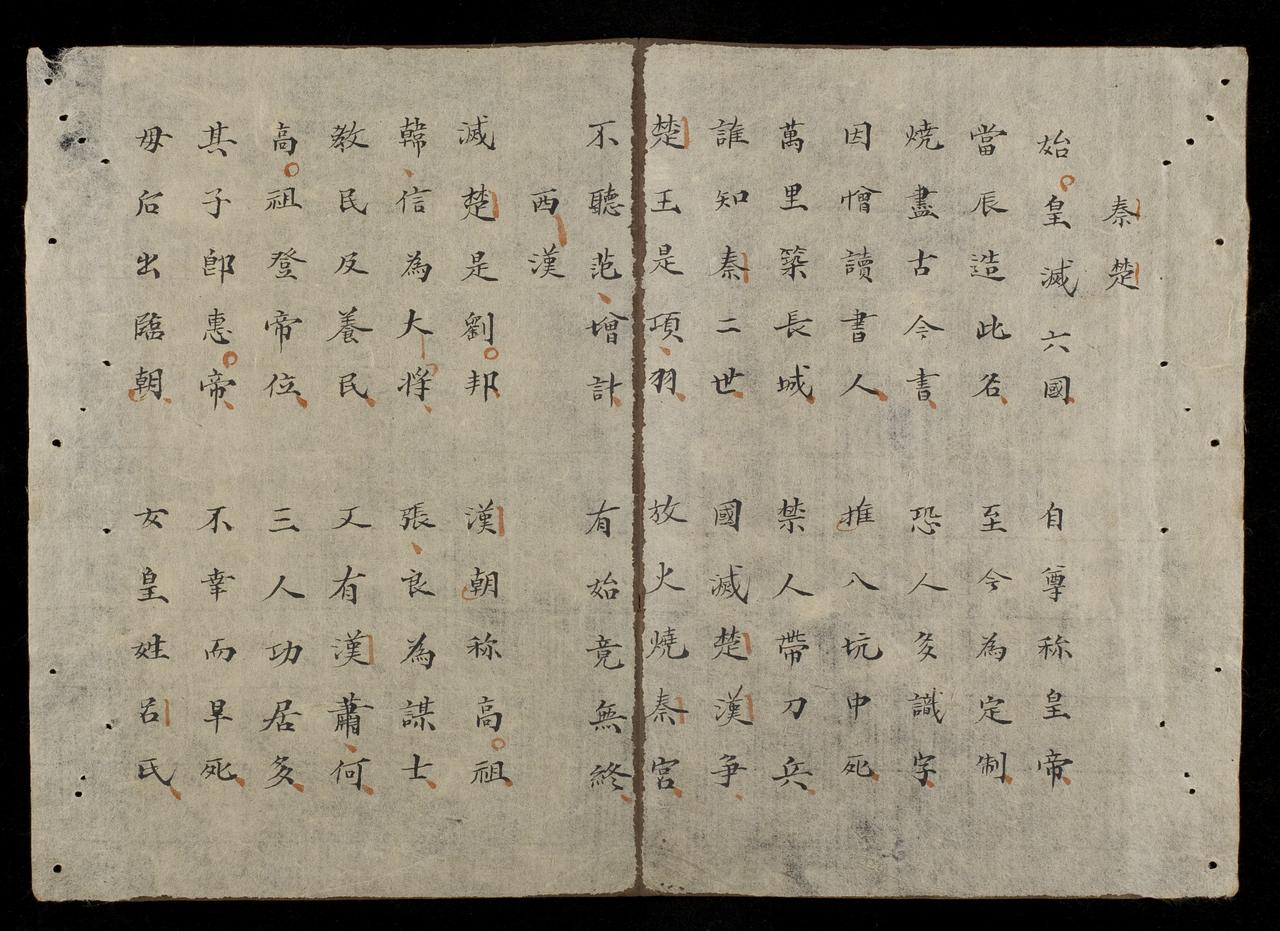 秦楚
始皇滅六國 自尊称皇帝
當辰造此名 至今為定制
燒盡古今書 恐人多識字
因憎讀書人 推入坑中死
萬里築長城 禁人帶刀兵
誰知秦二世 國滅楚漢爭
楚王是項羽 放火燒秦宮
不聽范增計 有始竟無終
西漢
滅楚是劉邦 漢朝称高祖
韓信為大將 張良為謀士
教民反養民 又有漢蕭何
高祖登帝位 三人功居多
其子郎惠帝 不幸而早死
母后出臨朝 女皇姓呂氏